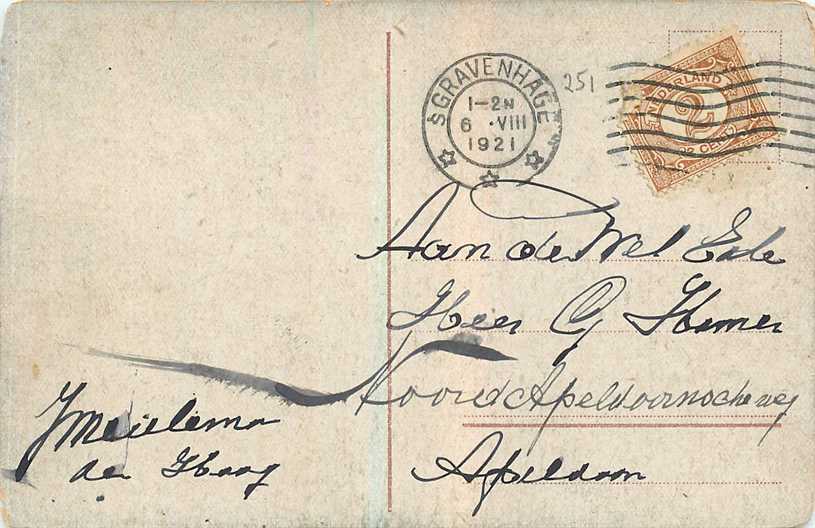 'SGRAVENHAGE
1-2N
6 .VIII
1921
251
NEDERLAND
2
2 CENT
Aan de Wel Ede
Heer G Hemer
Noord Apeldoornscheweg
Apeldoorn
J Meulema
den Haag